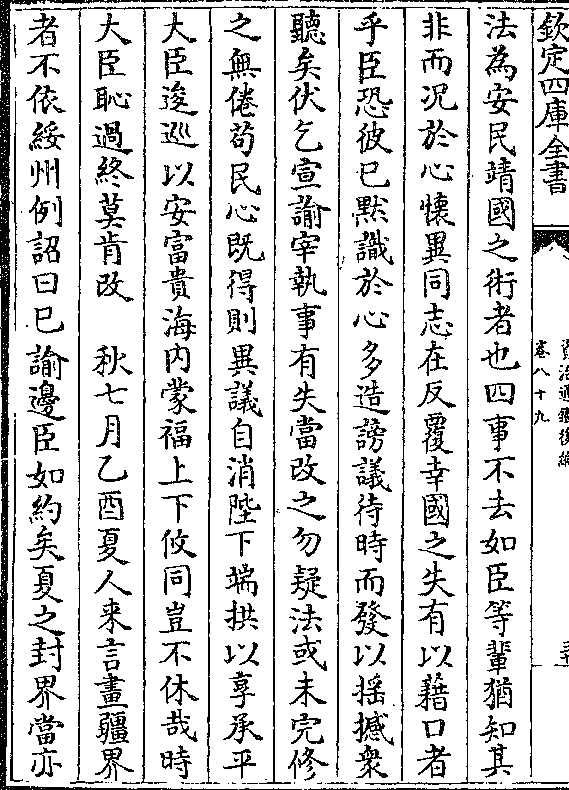 欽定四庫全書
資治通鑑後編
卷八十九
法為安民靖國之術者也四事不去如臣等輩猶知其
非而況於心懷異同志在反覆幸國之失有以藉口者
乎臣恐彼已黙識於心多造謗議待時而發以揺撼衆
聽矣伏乞宣諭宰執事有失當改之勿疑法或未完修
之無倦苟民心既得則異議自消陛下端拱以享承平
大臣逡巡以安富貴海内蒙福上下攸同豈不休哉時
大臣恥過終莫肯改　秋七月乙酉夏人来言畫疆界
者不依綏州例詔曰已諭邊臣如約矣夏之封界當亦